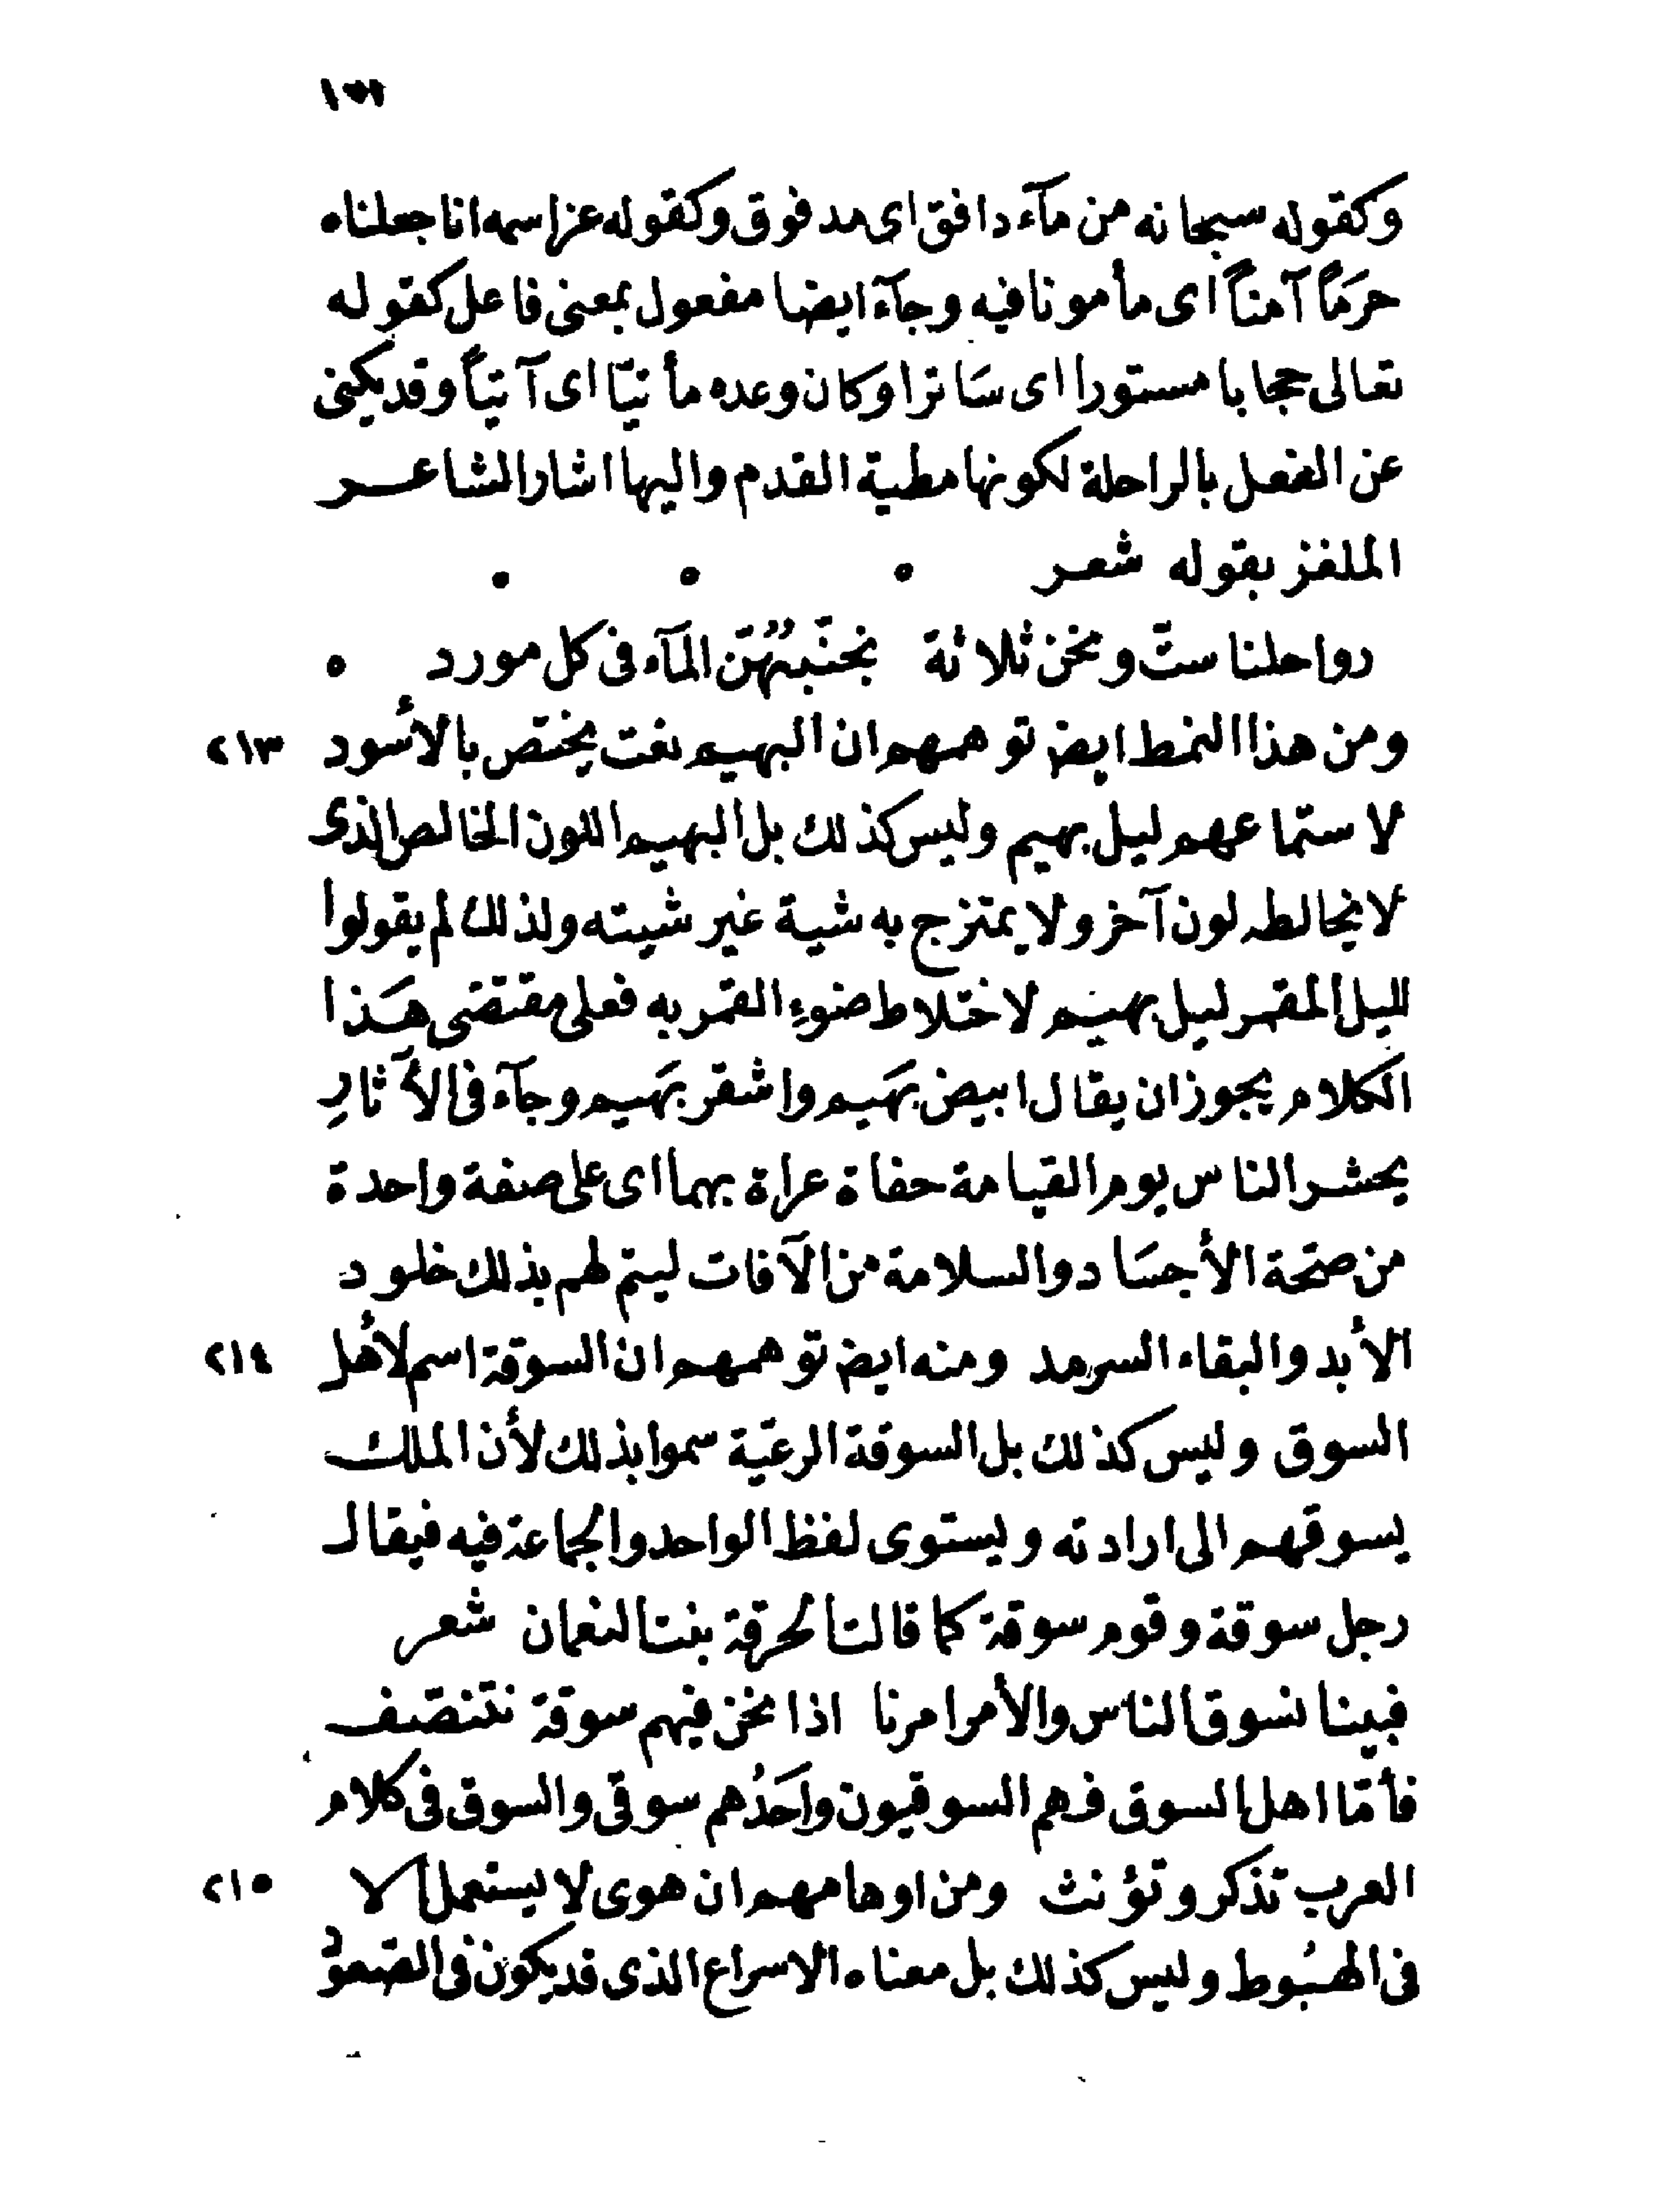 وكقوله سبحانه من مآء دافق اى مدفوق وكقوله عز اسمه انا جعلناه
حرَمًا آمنًا اى مأمونا فيه وجآء ايضا مفعول بمعنى فاعل كقوله
تعالى حجابا مستورا اى سَاترا وكان وعده مأتيّا اى آتيًا وقد يكنى
عن النعل بالراحلة لكونها مطية القدم واليها اشار الشاعر
الملغز بقوله شعر
رواحلنا ستّ ونحن ثلاثة نجنّبهُنّ المآء فى كل مورد
ومن هذا النمط ايض توهمهم ان البهيم نعت يختص بالأسود ٢١٣
لاستماعهم ليل بهيم وليس كذلك بل البهيم اللون الخالص الذى
لا يخالطه لون آخر ولا يمتزج به شية غير شيته ولذلك لم يقولوا
لليل المقمر ليل بهيم لاختلاط ضوءِ القمر به فعلى مقتضى هَذا
الكلام يجوز ان يقال ابيض بهَيم واشقر بهَيم وجآء فى الآثارِ
يحشر الناس يوم القيامة حفاة عراة بهما اى على صفة واحدة
من صحّة الأجسَاد والسلامة من الآفات ليتم لهم بذلك خلود
الأبد والبقاء السرمد ومنه ايض توهمهم ان السوقة اسم لأهل ٢١٤
السوق وليس كذلك بل السوقة الرعيّة سموا بذلك لأن الملك
يسوقهم الى ارادته ويستوى لفظ الواحد والجماعة فيه فيقال
رجل سوقة وقوم سوقة كما قالت الحرقة بنت النعمان شعر
فبينا نسوق الناس والأمر امرنا اذا نحن فيهم سوقة نتنصّف
فأمّا اهل السوق فهم السوقيون واحَدُهم سوقى والسوق فى كلام
العرب تذكر وتؤنث ومن اوهامهم ان هوى لا يستعمل الا ٢١٥
فى الهُبوط وليس كذلك بل معناه الاسراع الذى قد يكون فى الصّعود